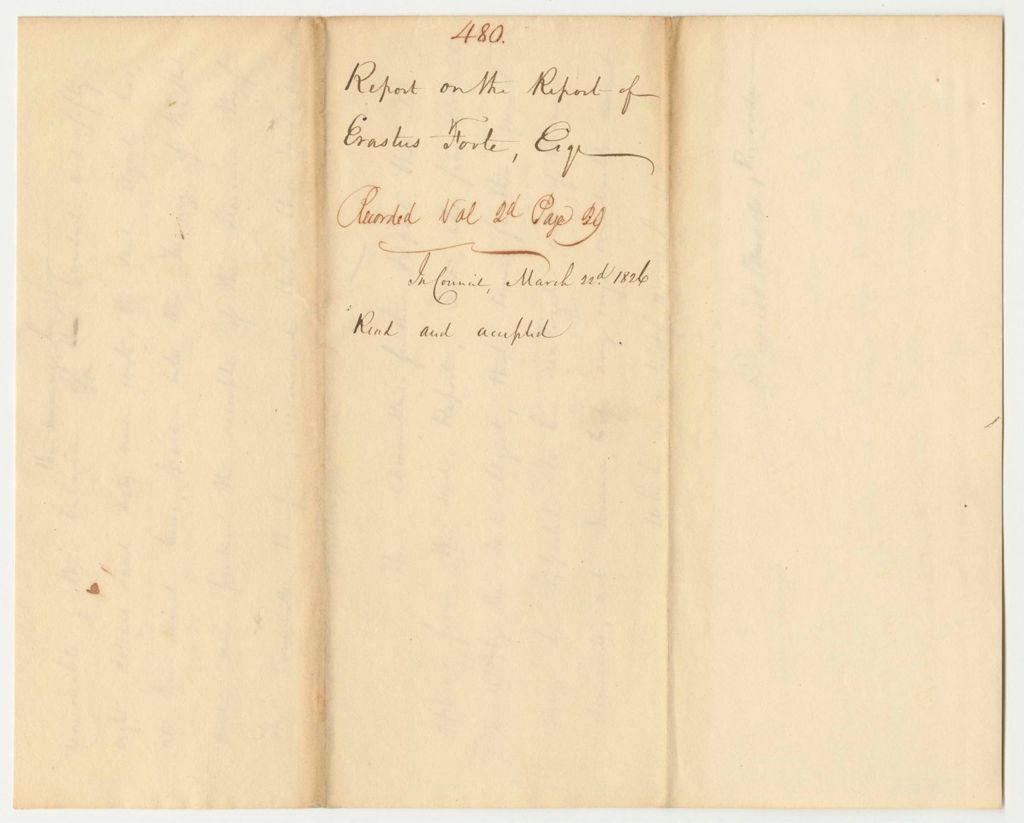 480.
Report on the Report of
Erastus Foote, Esqr
Recorded Vol 2d Page 29
In Council, March 22d. 1826
Read and accepted